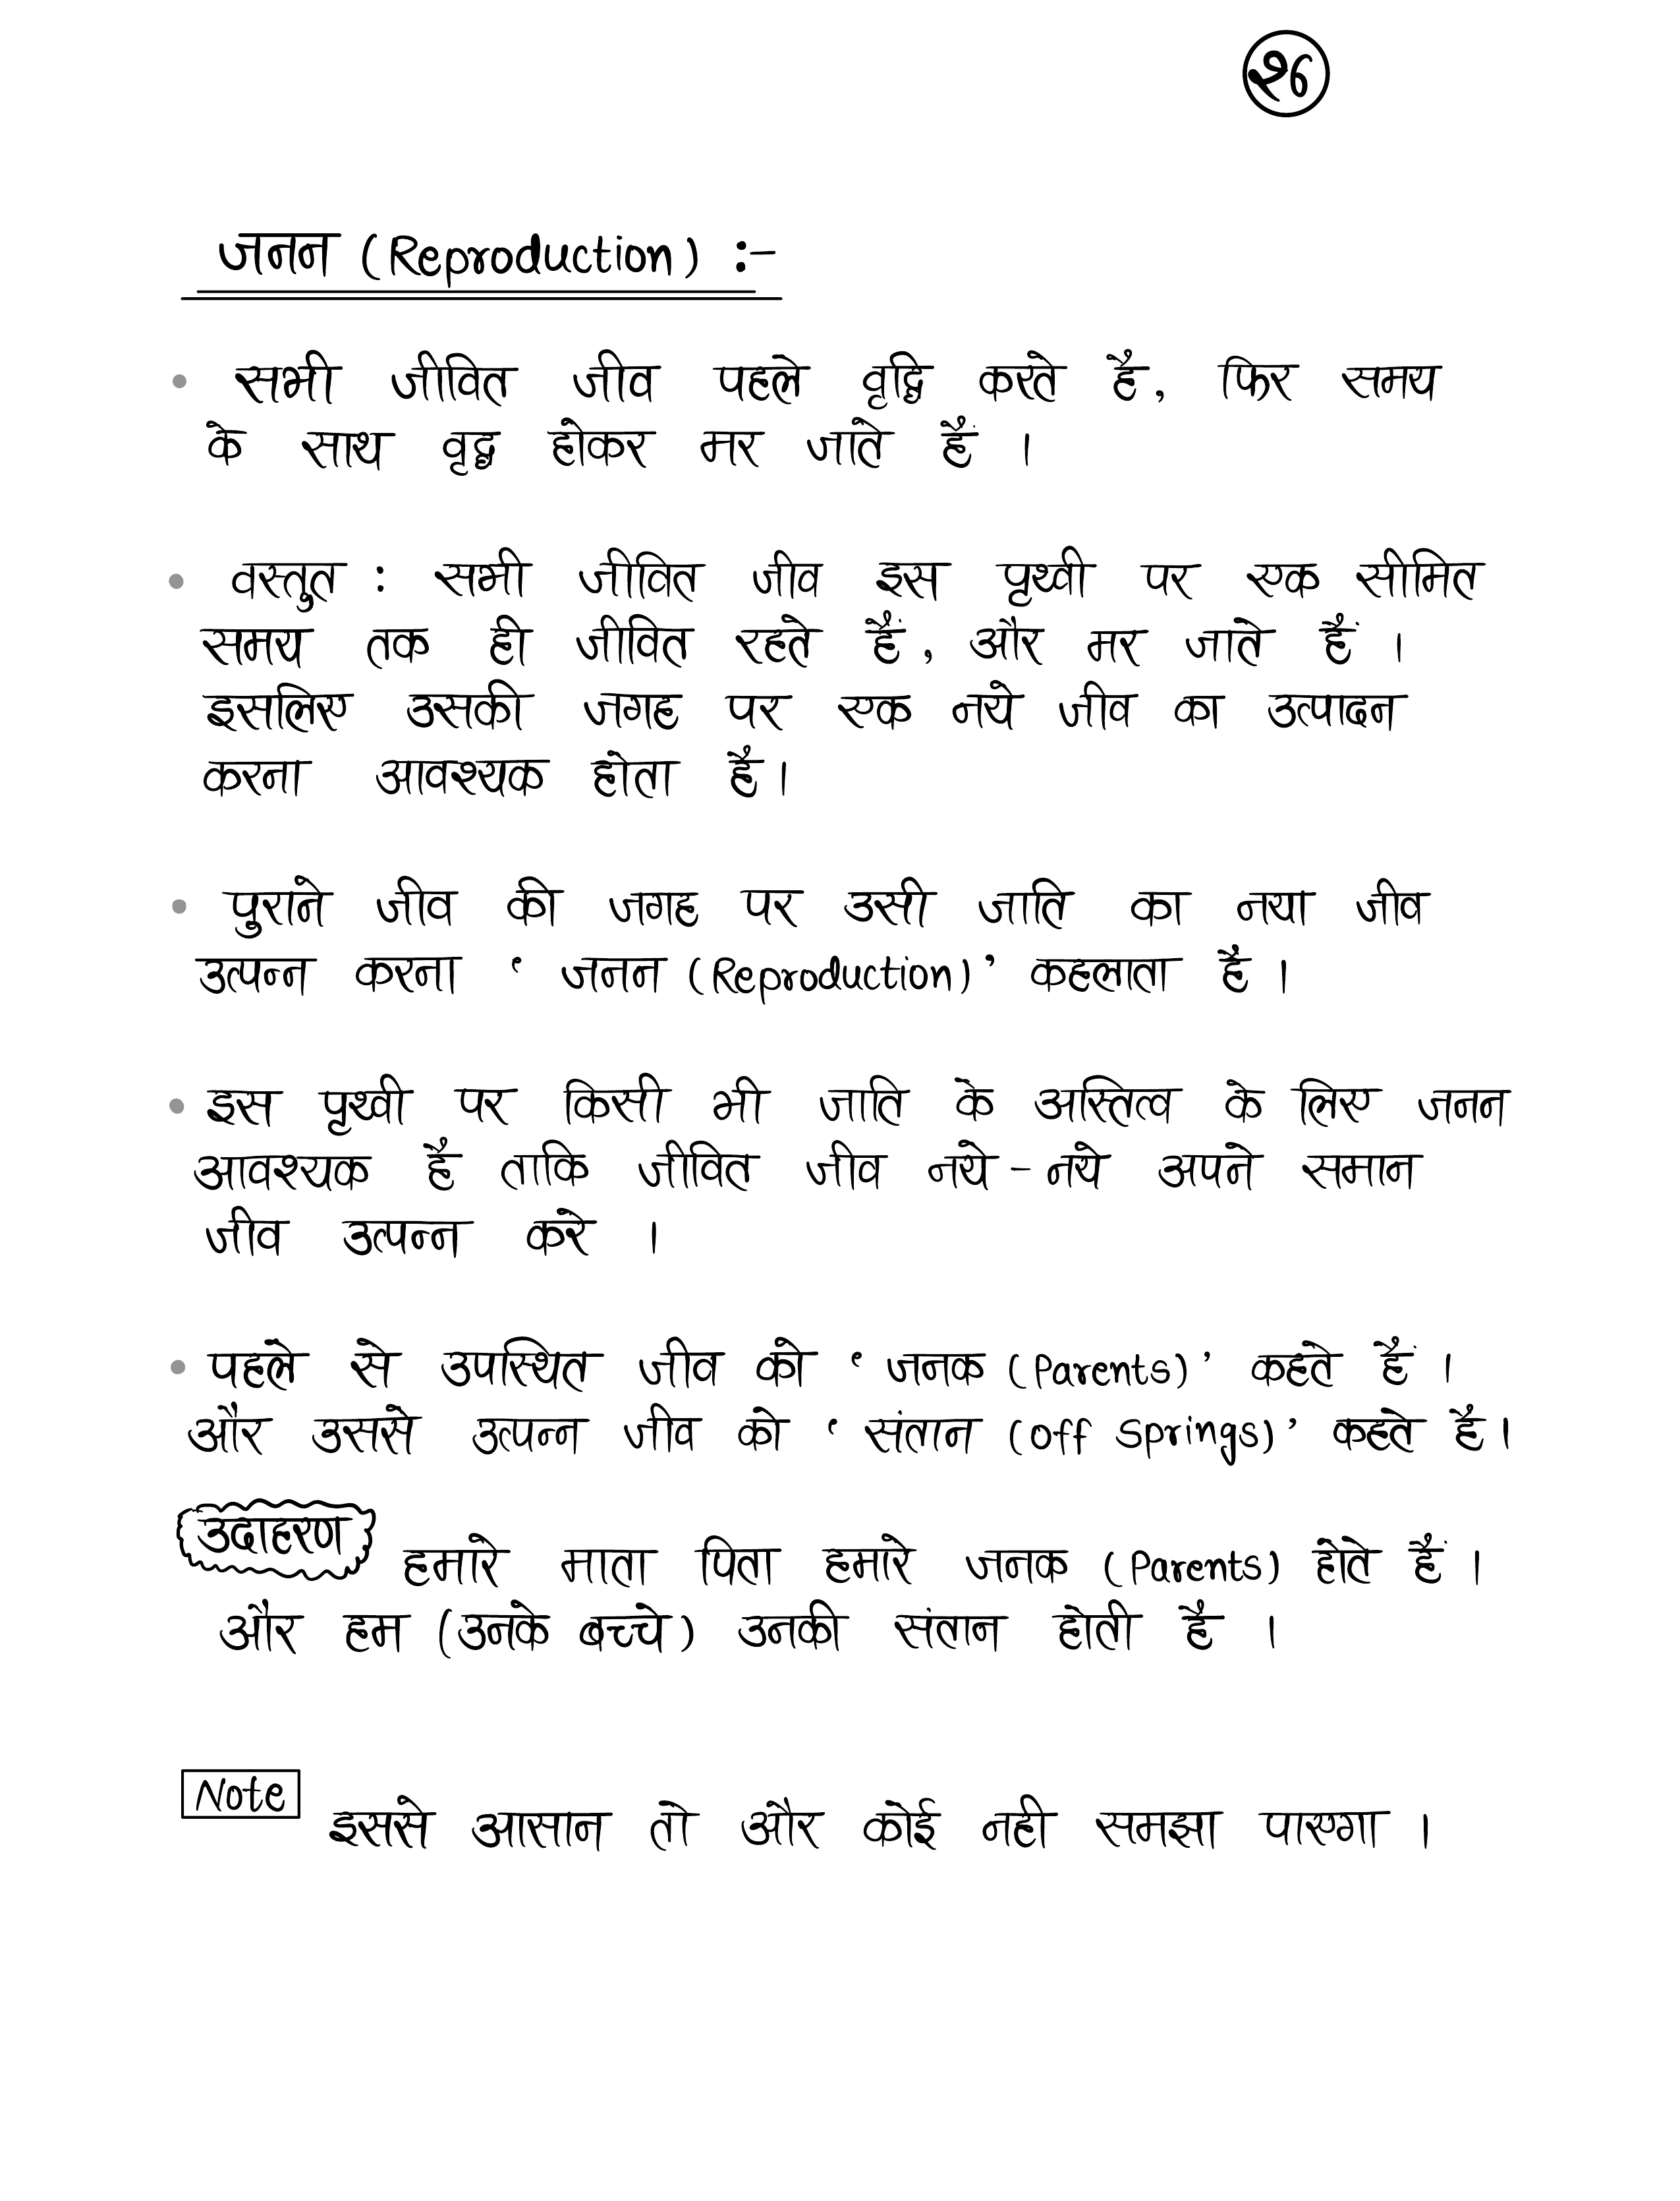 २६
जनन (Reproduction) :-
• सभी जीवित जीव पहले वृद्धि करते हैं, फिर समय
के साथ वृद्ध होकर मर जाते हैं ।
• वस्तुत : सभी जीवित जीव इस पृथ्वी पर एक सीमित
समय तक ही जीवित रहते हैं, और मर जाते हैं ।
इसलिए उसकी जगह पर एक नये जीव का उत्पादन
करना आवश्यक होता है।
• पुराने जीव की जगह पर उसी जाति का नया जीव
उत्पन्न करना ‘ जनन (Reproduction)’ कहलाता है ।
• इस पृथ्वी पर किसी भी जाति के अस्तित्व के लिए जनन
आवश्यक है ताकि जीवित जीव नये - नये अपने समान
जीव उत्पन्न करे ।
• पहले से उपस्थित जीव को ‘ जनक (Parents)’ कहते हैं ।
और उससे उत्पन्न जीव को ‘ संतान (Off Springs)’ कहते है।
उदाहरण हमारे माता पिता हमारे जनक (Parents) होते हैं ।
और हम (उनके बच्चे) उनकी संतान होती है ।
Note इससे आसान तो और कोई नही समझा पाएगा ।